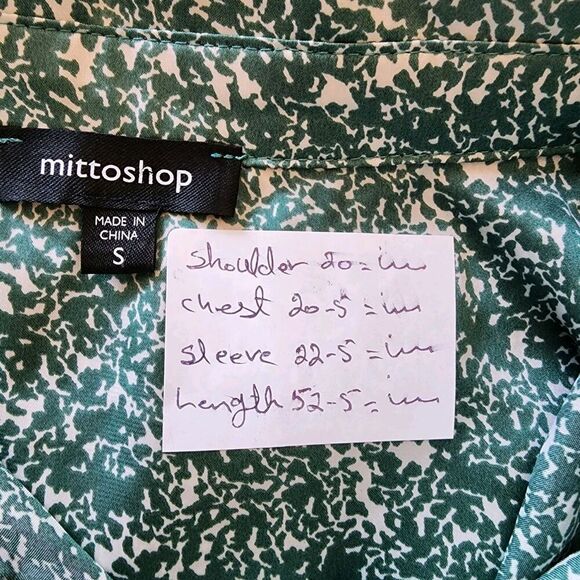 mittoshop
MADE IN
CHINA
S
Shoulder 20 = in
chest 20-5 = in
sleeve 22-5 = in
Length 52-5 = in